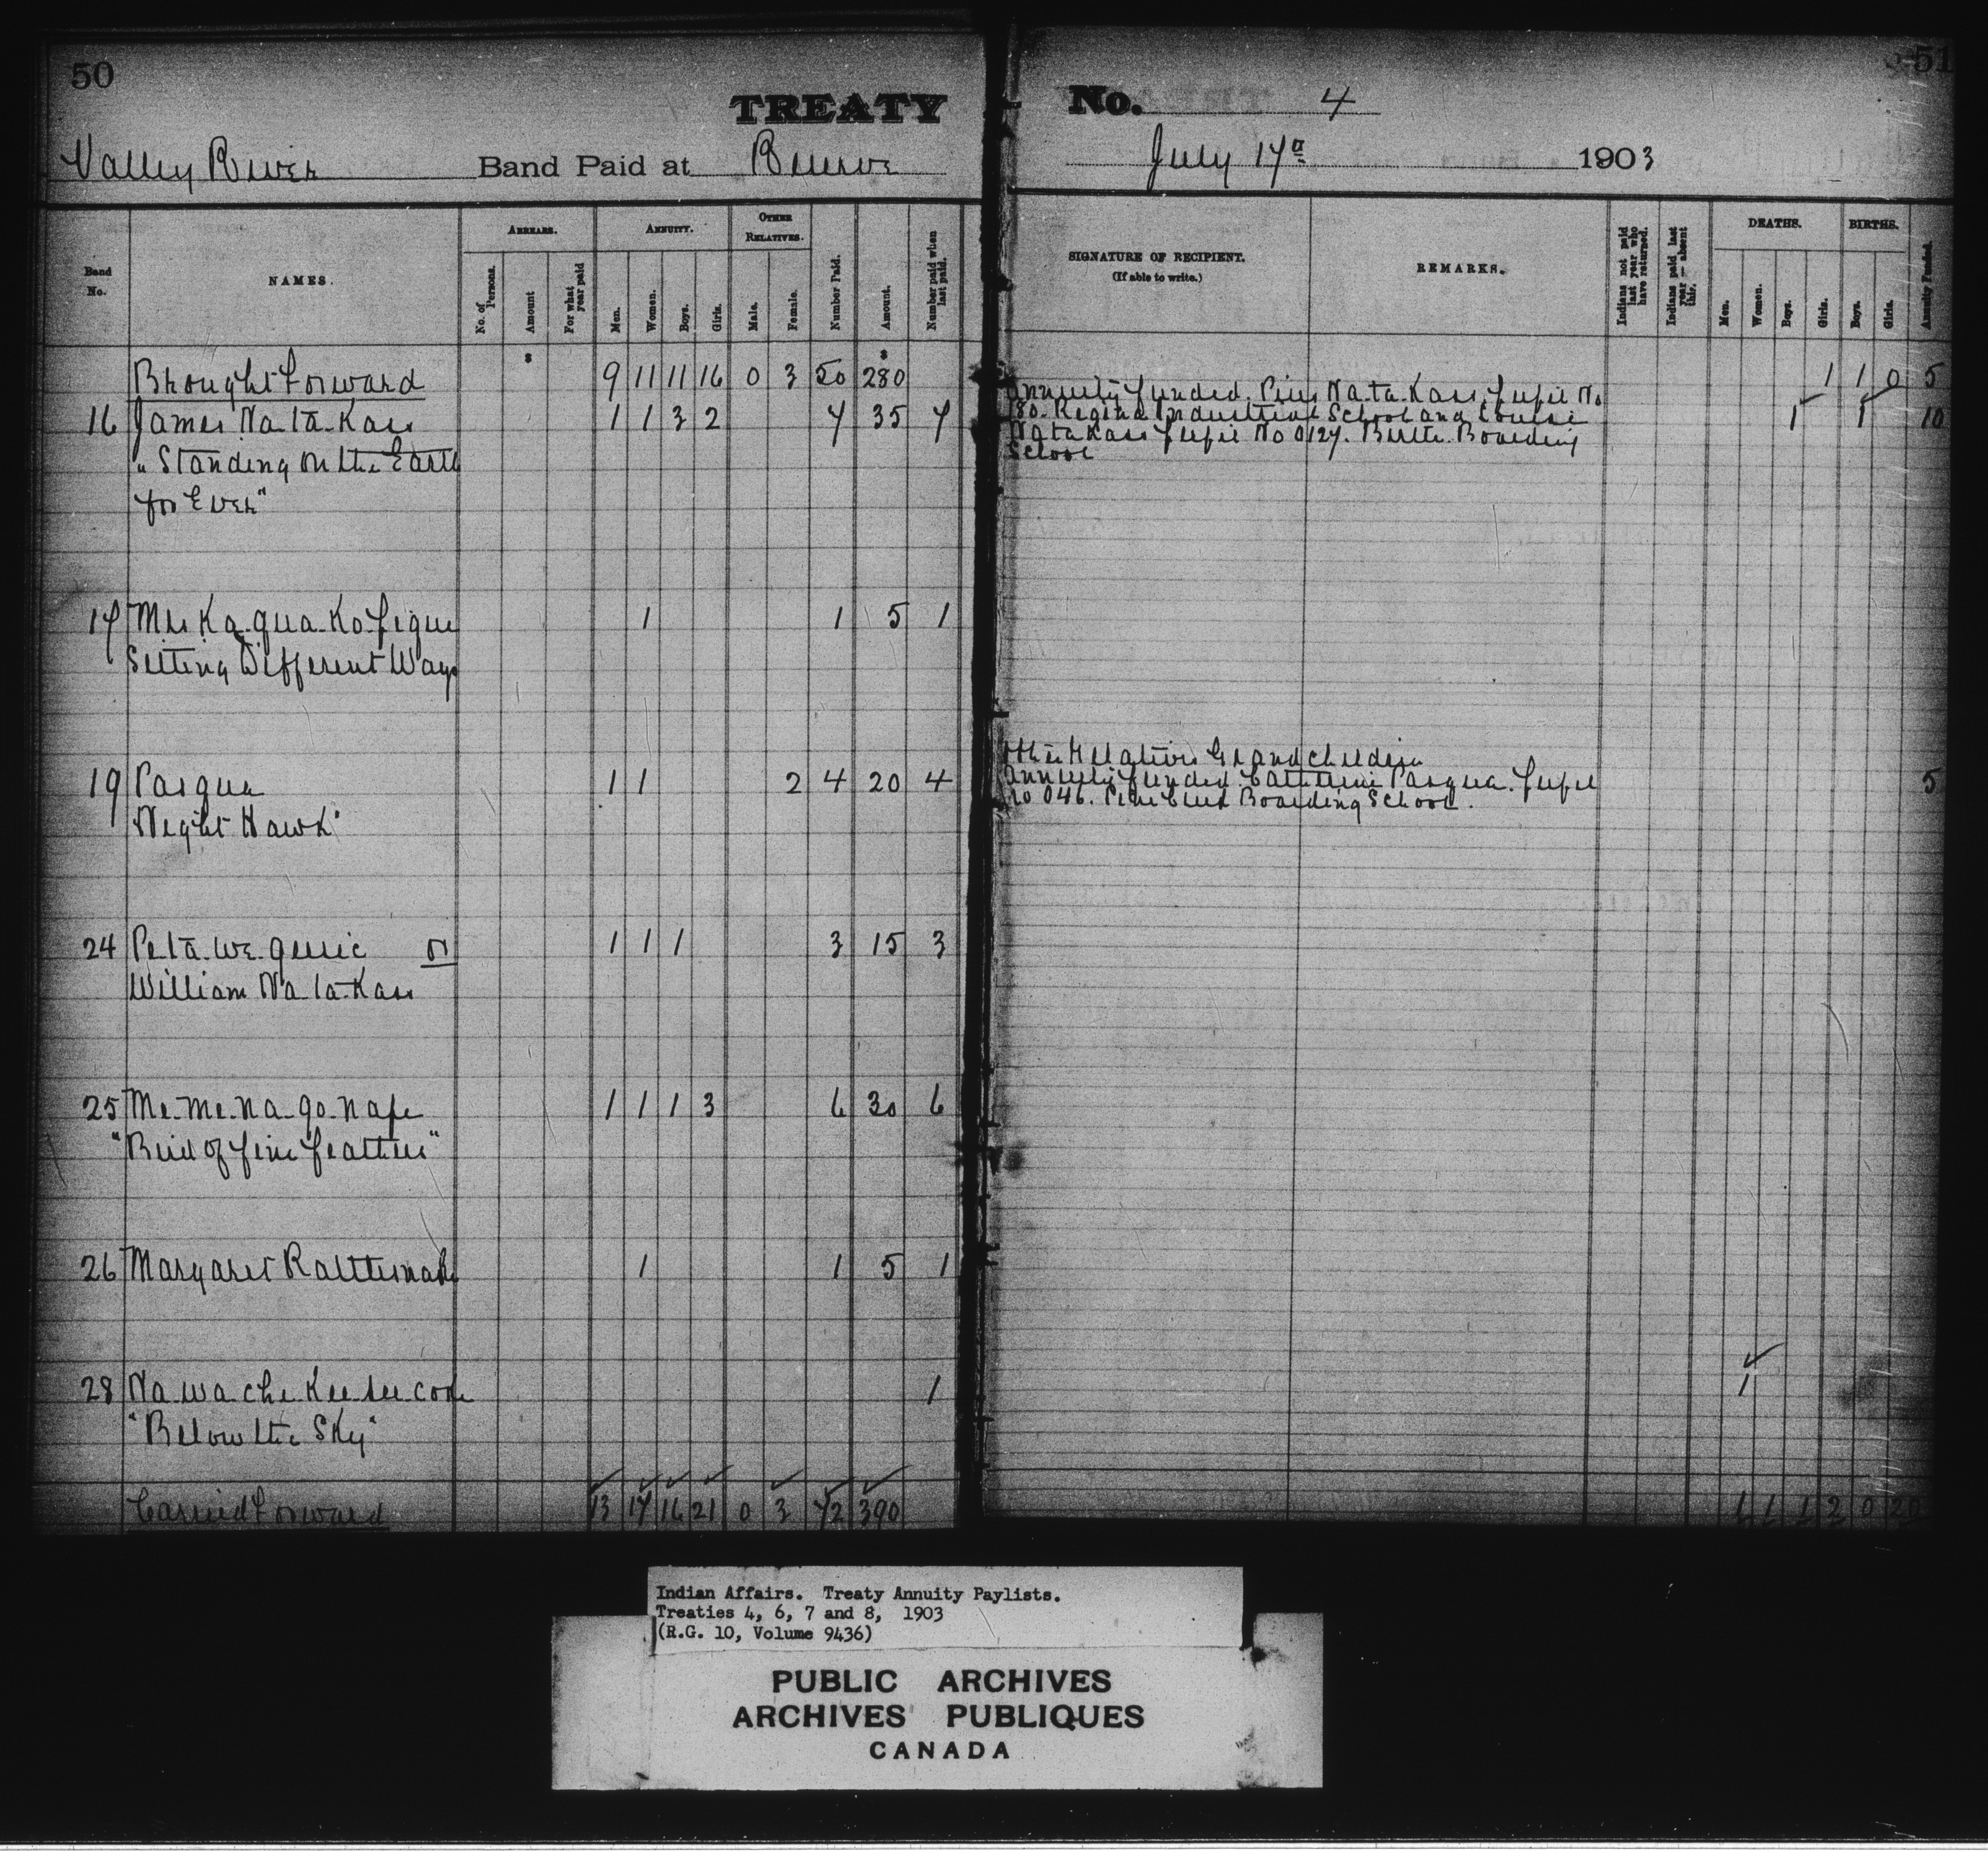 50
TREATY
Valley River Band Paid at Reserve
Band No.
NAMES.
ARREARS.
No. of Persons.
Amount
For what year paid
ANNUITY.
Men.
Women.
Boys.
Girls.
OTHER RELATIVES.
Male.
Female.
Number Paid.
Amount.
Number paid when last paid.
$ $
Brought forward 9 11 11 16 0 3 50 280
16 James Na-ta-Kass 1 1 3 2 7 35 7
"Standing on the Earth
for Ever"
17 Mrs Ka-qua-Ko-pique 1 1 5 1
Sitting Different Ways
19 Pasqua 1 1 2 4 20 4
Night Hawk"
24 Pe-ta-we-gesic or 1 1 1 3 15 3
William Na-ta-Kass
25 Me-me-na-go-nape 1 1 1 3 6 30 6
"Bird of fine feathers"
26 Margaret 1 1 5 1
28 Na-wa-che-Kee-see-coose 1
"Below the Sky"
Carried forward 13 17 16 21 0 3 72 390
51
No. 4
July 17th 1903
SIGNATURE OF RECIPIENT.
(If able to write.)
REMARKS.
Indians not paid last year who have returned.
Indians paid last year — absent this.
DEATHS.
Men.
Women.
Boys.
Girls.
BIRTHS.
Boys.
Girls.
Annuity Funded.
1 1 0 5
Annuity funded. Pius Na-ta-Kass, pupil No
180. Regina Industrial School and Louise 1 1 10
Natakass pupil No 0127. Birtle Boarding
School
Other Relatives Grandchildren
Annuity funded. Catherine Pasqua. pupil 5
No 046. Pine Creek Boarding School.
1
1 1 1 2 0 20
Indian Affairs. Treaty Annuity Paylists.
Treaties 4, 6, 7 and 8, 1903
(R.G. 10, Volume 9436)
PUBLIC ARCHIVES
ARCHIVES PUBLIQUES
CANADA